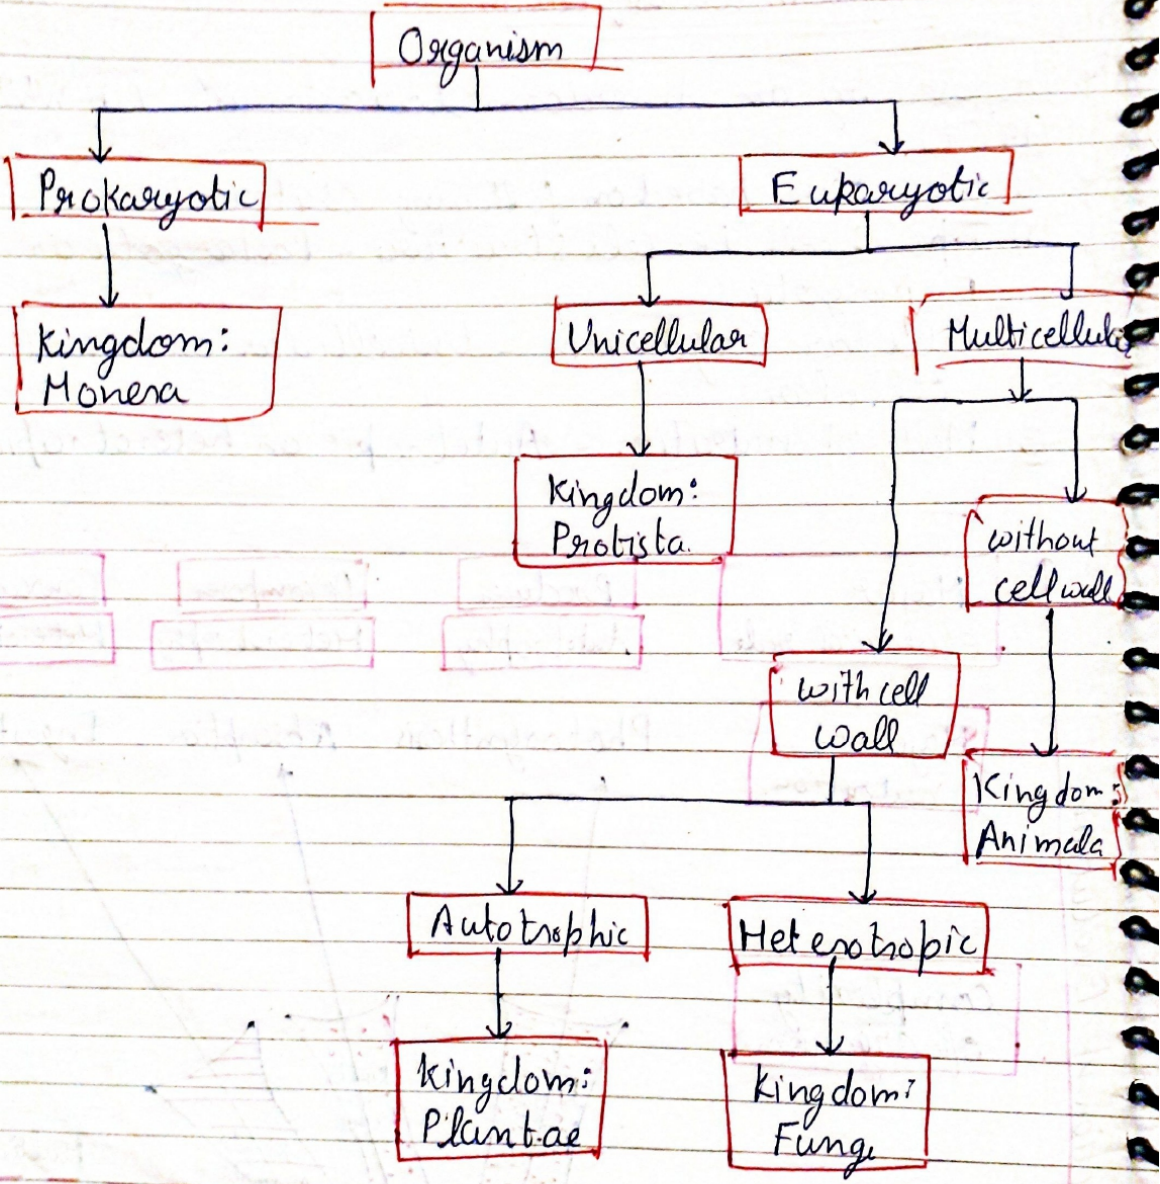 Organism
Prokaryotic
Eukaryotic
Kingdom:
Monera
Unicellular
Multicellular
Kingdom:
Protista.
without
cell wall
with cell
wall
Kingdom:
Animala
Autotrophic
Heterotropic
Kingdom:
Plantae
Kingdom:
Fungi